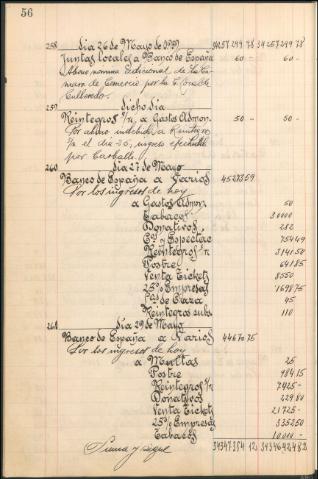 56
258 Dia 26 de Mayo de 1937 34257299 78 34257299 78
Juntas Locales a Banco de España 60 - 60 -
Abono nomina adicional de la Camara de Comercio por la
Cullerdo.
259 Dicho dia
Reintegros a Gastos Admon. 50 - 50 -
Por abono indebido a Reintegros
el dia 20, ingreso efectuado
por Caraballo.
260 Dia 27 de Mayo
Banco de España a Varios
Por los ingresos de hoy
a Gastos Admon. 50
Tabacos 30000
Donativos 282
Espectaclo 75449
Reintegros 314150
Postre 64185
Venta Tickets 8550
25% Empresas 169875
de Caza 45
Reintegros subs. 110
261 Dia 29 de Mayo
Banco de España a Varios 4467075
Por los ingresos de hoy
a Multas 25
Postre 98415
Reintegros 7425 -
Donativos 22980
Venta Tickets 21725 -
25% Empresas 335250
Tabacos 10000 -
Suma y sigue 34347384 12